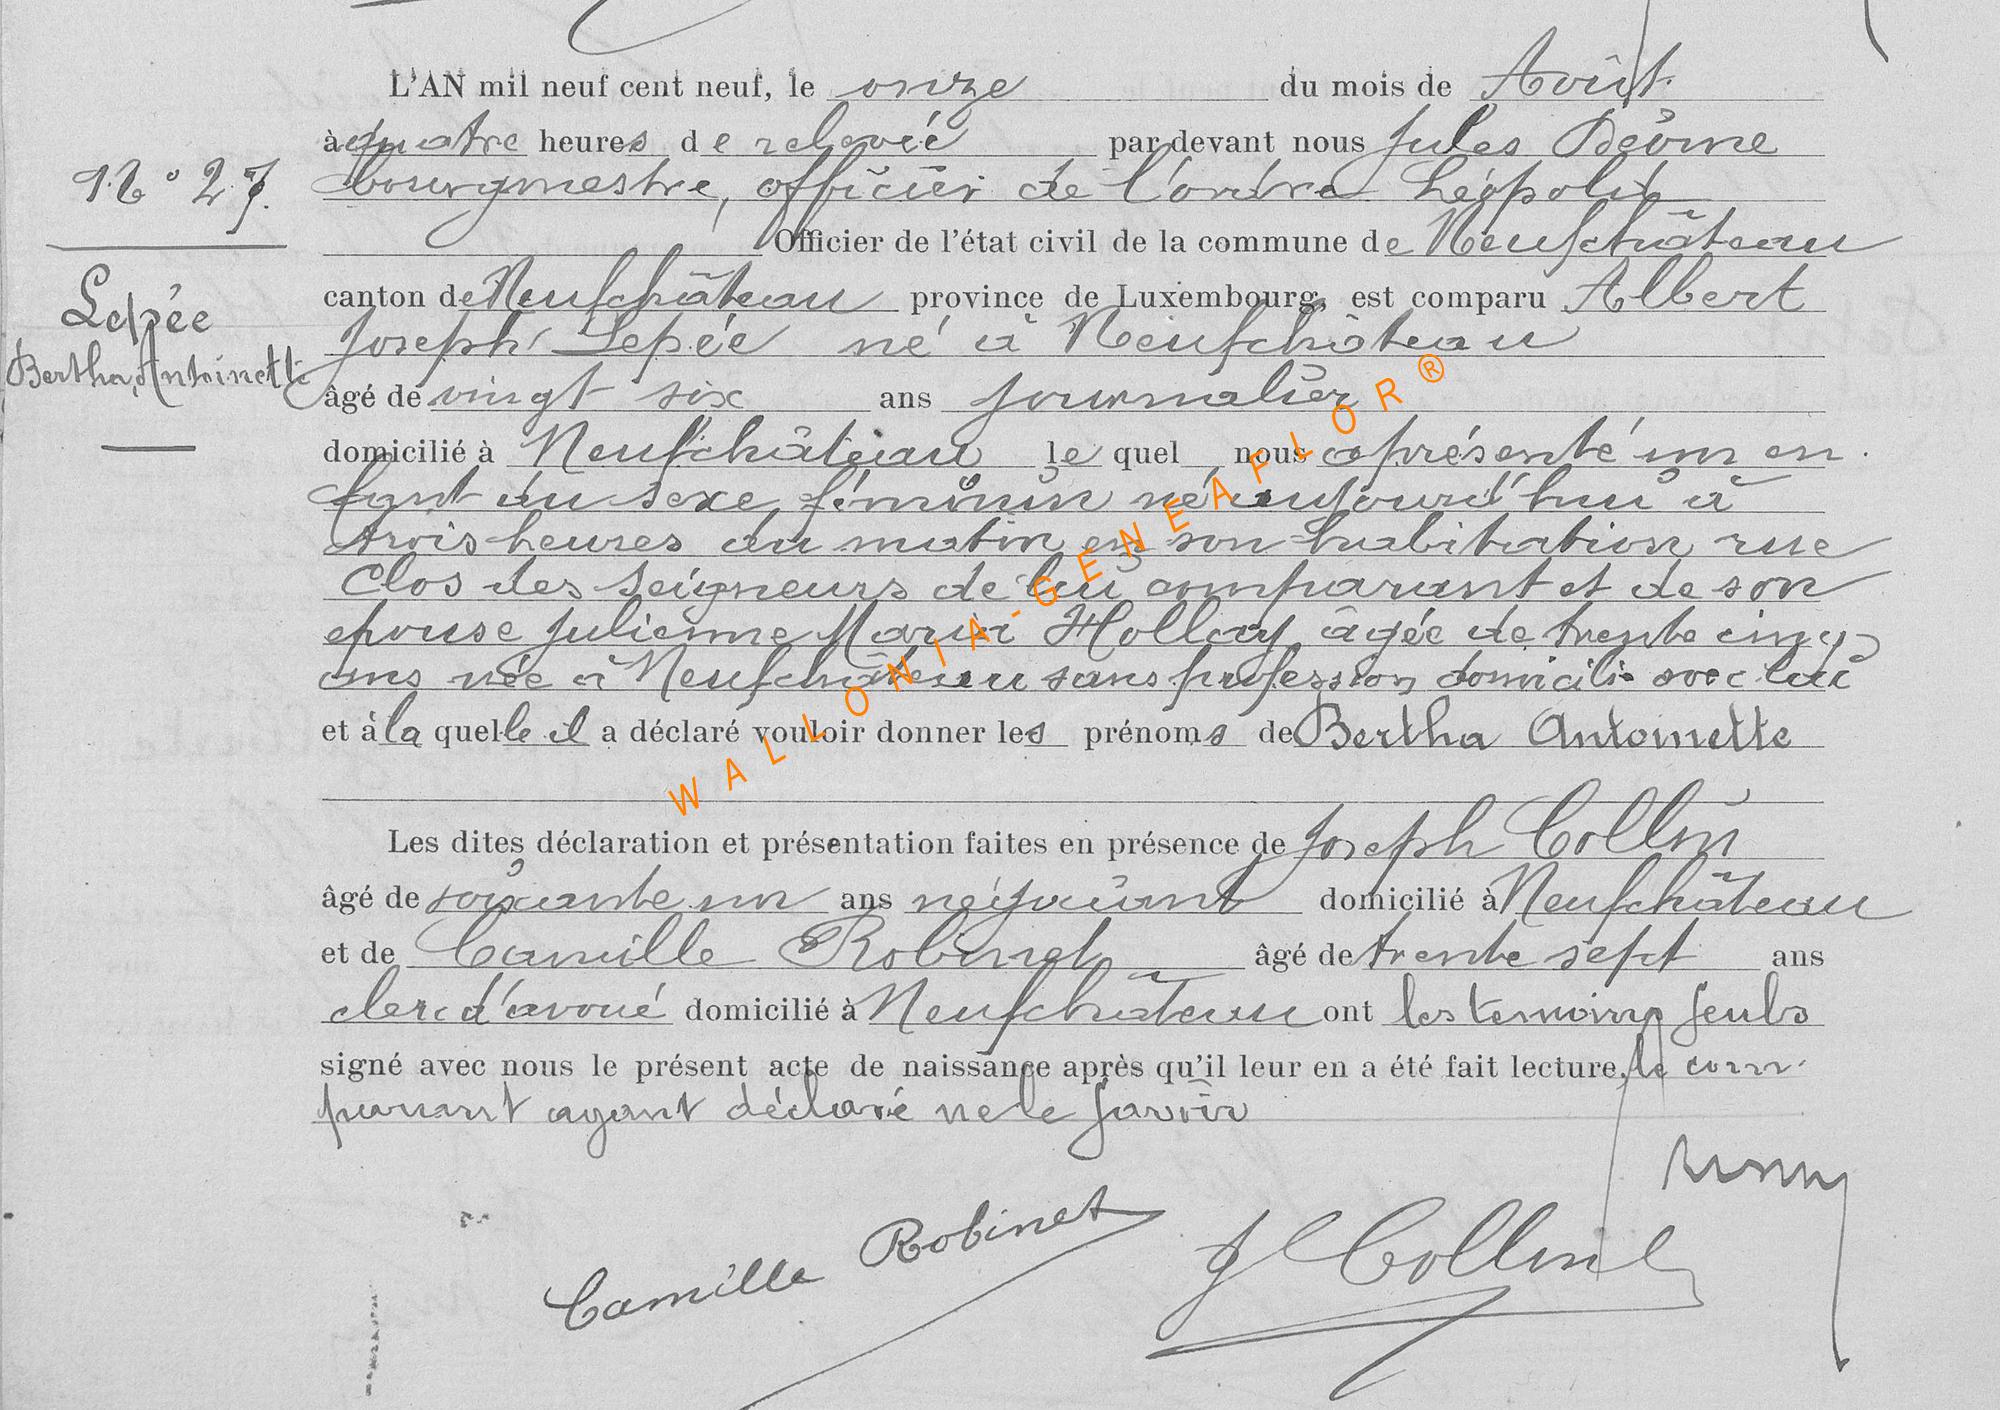 L'AN mil neuf cent neuf, le onze du mois de Août
à quatre heures de relevée par devant nous Jules
N° 27. bourgmestre, officier de l'ordre Léopold
Officier de l'état civil de la commune de Neufchâteau
Lepée
Bertha, Antoinette
canton de Neufchâteau province de Luxembourg, est comparu Albert
Joseph Lepée né à Neufchâteau
âgé de vingt six ans journalier
domicilié à Neufchâteau le quel nous a présenté un en
fant du sexe féminin né aujourd'hui à
trois heures du matin en son habitation rue
Clos des Seigneurs de lui comparant et de son
epouse Julienne Maria Hollay, âgée de trente cinq
ans née à Neufchâteau sans profession domicilié avec lui
et à la quelle il a déclaré vouloir donner les prénoms de Bertha Antoinette
Les dites déclaration et présentation faites en présence de Joseph Collin
âgé de soixante un ans négociant domicilié à Neufchâteau
et de Camille Robinet âgé de trente sept ans
clerc d'avoué domicilié à Neufchâteau ont les temoins seuls
signé avec nous le présent acte de naissance après qu'il leur en a été fait lecture, le com-
parant ayant déclaré ne le savoir
Camille Robinet
J Collin
WALLONIA-GENEAFLOR®